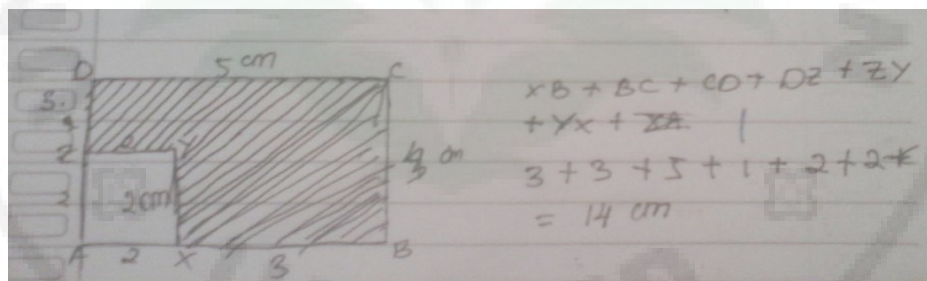 D 5 cm C
3
1
Z 2 Y
2 2cm
cm
A 2 X 3 B
XB + BC + CD + DZ + ZY
+ YX +
3 + 3 + 5 + 1 + 2 + 2
= 14 cm